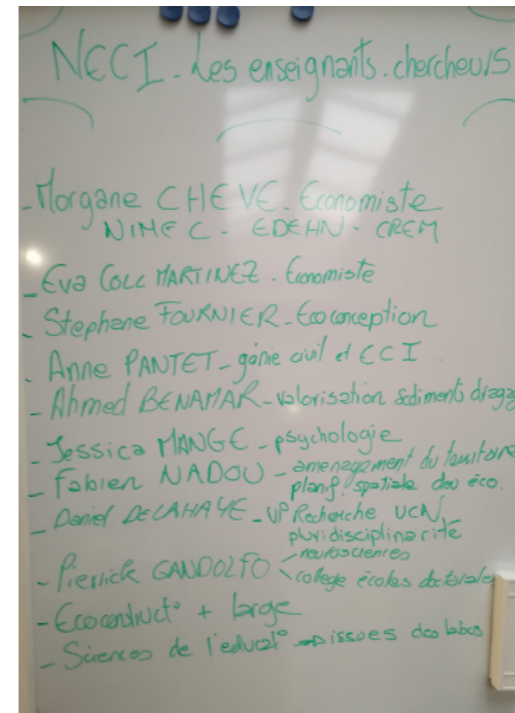 NECI - Les enseignants - chercheurs
- Morgane CHEVE - Economiste
NIMEC - EDEHN - CREM
- Eva COLL MARTINEZ - Economiste
- Stephane FOURNIER - Ecoconception
- Anne PANTET - génie civil et ECI
- Ahmed BENAMAR - valorisation sédiments dragag
- Jessica MANGE - psychologie
- Fabien NADOU - amenagement du territoire
planif. spatiale dev éco.
- Daniel DELAHAYE - VP Recherche UCN
pluridisciplinarité
- neurosciences
- Pierrick GANDOLFO - college écoles doctorales
- Ecoconduct° + large
- Sciences de l'educat° → issues des labos